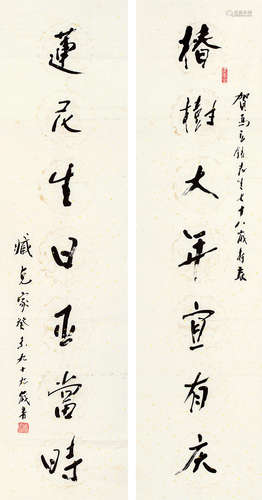 賀馬立誠先生七十八歲壽辰
椿樹大年宜有庆
蓮花生日正當時
臧克家癸未九十九歲書